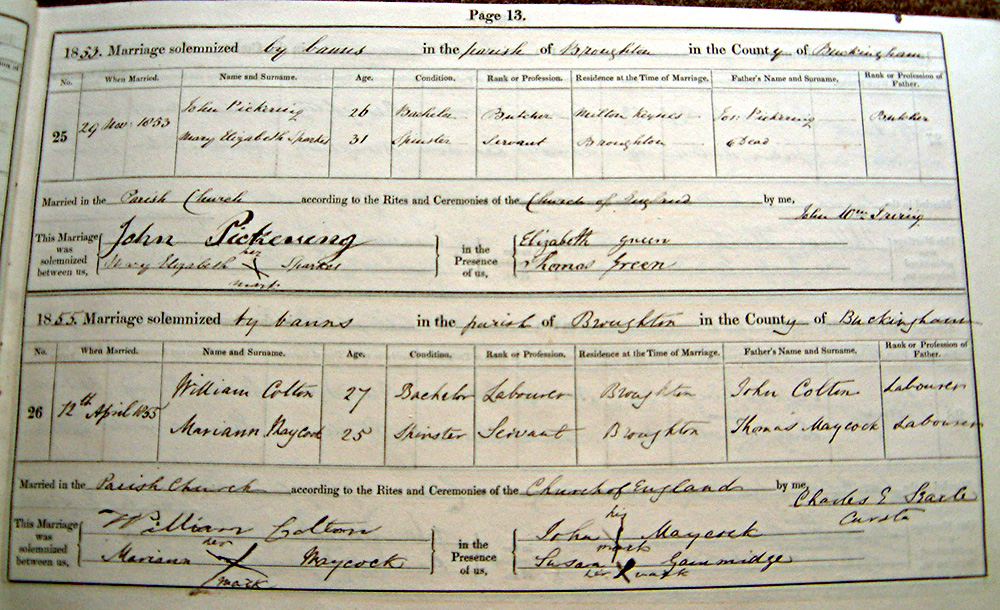 Page 13.
1853. Marriage solemnized by banns in the parish of Broughton in the County of Buckingham
No. When Married. Name and Surname. Age. Condition. Rank or Profession. Residence at the Time of Marriage. Father's Name and Surname. Rank or Profession of Father.
25 29 Nov. 1853 John Pickering 26 Bachelor Butcher Milton Keynes Jos. Pickering Butcher
Mary Elizabeth Sparkes 31 Spinster Servant Broughton Dead
Married in the Parish Church according to the Rites and Ceremonies of the Church of England by me,
John Wm. Irving
This Marriage was solemnized between us, John Pickering in the Presence of us, Elizabeth Green
Mary Elizabeth her X mark Sparkes Thomas Green
1855. Marriage solemnized by banns in the parish of Broughton in the County of Buckingham
No. When Married. Name and Surname. Age. Condition. Rank or Profession. Residence at the Time of Marriage. Father's Name and Surname. Rank or Profession of Father.
26 12th April 1855 William Colton 27 Bachelor Labourer Broughton John Colton Labourer
Mariann Maycock 25 Spinster Servant Broughton Thomas Maycock Labourer
Married in the Parish Church according to the Rites and Ceremonies of the Church of England by me,
Charles E
Curate
This Marriage was solemnized between us, William Colton in the Presence of us, John his X mark Maycock
Mariann her X mark Maycock Susan her X mark Gammidge